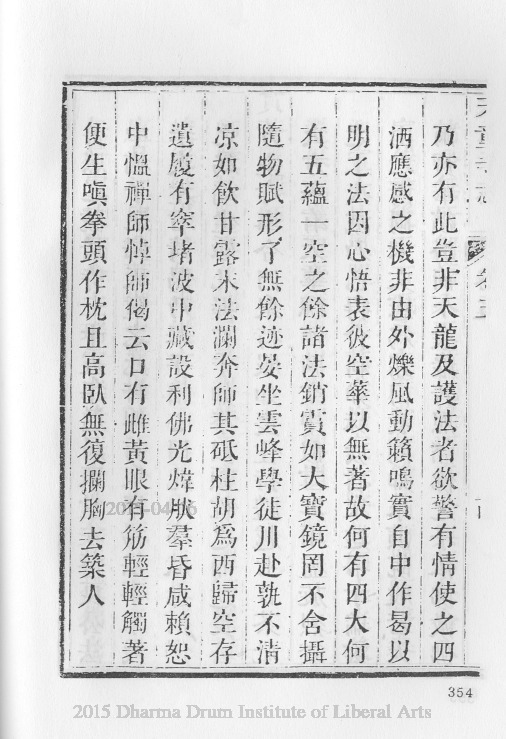 乃亦有此豈非天龍及護法者欲警有情使之四
洒應感之機非由外爍風動籟鳴實自中作曷以
明之法因心悟表彼空華以無著故何有四大何
有五蘊一空之餘諸法銷霣如大寶鏡罔不舍攝
隨物賦形了無餘迹晏坐雲峰學徒川赴孰不清
凉如飲甘露末法瀾奔師其砥柱胡爲西歸空存
遺履有窣堵波中藏設利佛光煒肰羣昏咸賴恕
中慍禪師悼師偈云口有雌黃眼有筋輕輕觸著
便生嗔拳頭作枕且高臥無復攔胸去築人
354
2015 Dharma Drum Institute of Liberal Arts